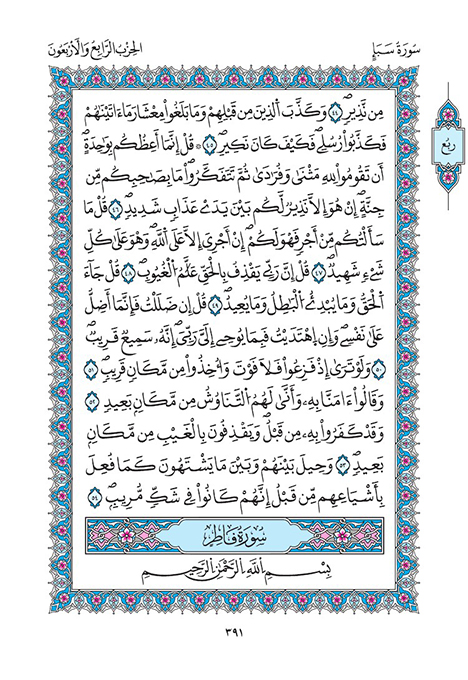 سُورَةُ سَبَإٍ
الحِزْبُ الرَّابِعُ وَالأَرْبَعُونَ
ربع
مِن نَّذِيرٖۖ ٤٤ وَكَذَّبَ اَلذِينَ مِن قَبْلِهِمْ وَمَا بَلَغُواْ مِعْشَارَ مَا ءَاتَيْنَٰهُمْ
فَكَذَّبُواْ رُسُلِےۖ فَكَيْفَ كَانَ نَكِيرِۖ ٤٥ ۞ قُلِ اِنَّمَا أَعِظُكُم بِوَٰحِدَةٍۖ
أَن تَقُومُواْ لِلهِ مَثْنَىٰ وَفُرَٰدَىٰ ثُمَّ تَتَفَكَّرُواْۖ مَا بِصَٰحِبِكُم مِّن
جِنَّةٍۖ اِنْ هُوَ إِلَّا نَذِيرٞ لَّكُم بَيْنَ يَدَےْ عَذَابٖ شَدِيدٖۖ ٤٦ قُلْ مَا
سَأَلْتُكُم مِّنَ اَجْرٖ فَهُوَ لَكُمُۥٓۖ إِنَ اَجْرِيَ إِلَّا عَلَى اَللَّهِۖ وَهُوَ عَلَىٰ كُلِّ
شَےْءٖ شَهِيدٞۖ ٤٧ قُلِ اِنَّ رَبِّے يَقْذِفُ بِالْحَقِّ عَلَّٰمُ اُلْغُيُوبِۖ ٤٨ قُلْ جَآءَ
اَلْحَقُّ وَمَا يُبْدِئُ اُلْبَٰطِلُ وَمَا يُعِيدُۖ ٤٩ قُلِ اِن ضَلَلْتُ فَإِنَّمَا أَضِلُّ
عَلَىٰ نَفْسِےۖ وَإِنِ اِهْتَدَيْتُ فَبِمَا يُوحِے إِلَيَّ رَبِّيَۖ إِنَّهُۥ سَمِيعٞ قَرِيبٞۖ
٥٠ وَلَوْ تَرَىٰٓ إِذْ فَزِعُواْ فَلَا فَوْتَ وَأُخِذُواْ مِن مَّكَانٖ قَرِيبٖۖ ٥١
وَقَالُوٓاْ ءَامَنَّا بِهِۦۖ وَأَنَّىٰ لَهُمُ اُلتَّنَاوُشُ مِن مَّكَانِۢ بَعِيدٖ ٥٢
وَقَدْ كَفَرُواْ بِهِۦ مِن قَبْلُۖ وَيَقْذِفُونَ بِالْغَيْبِ مِن مَّكَانِۢ
بَعِيدٖۖ ٥٣ وَحِيلَ بَيْنَهُمْ وَبَيْنَ مَا يَشْتَهُونَ كَمَا فُعِلَ
بِأَشْيَاعِهِم مِّن قَبْلُۖ إِنَّهُمْ كَانُواْ فِے شَكّٖ مُّرِيبٖۖ ٥٤
سُورَةُ فَاطِرٍ
بِسْمِ اِللَّهِ اِلرَّحْمَٰنِ اِلرَّحِيمِ
٣٩١